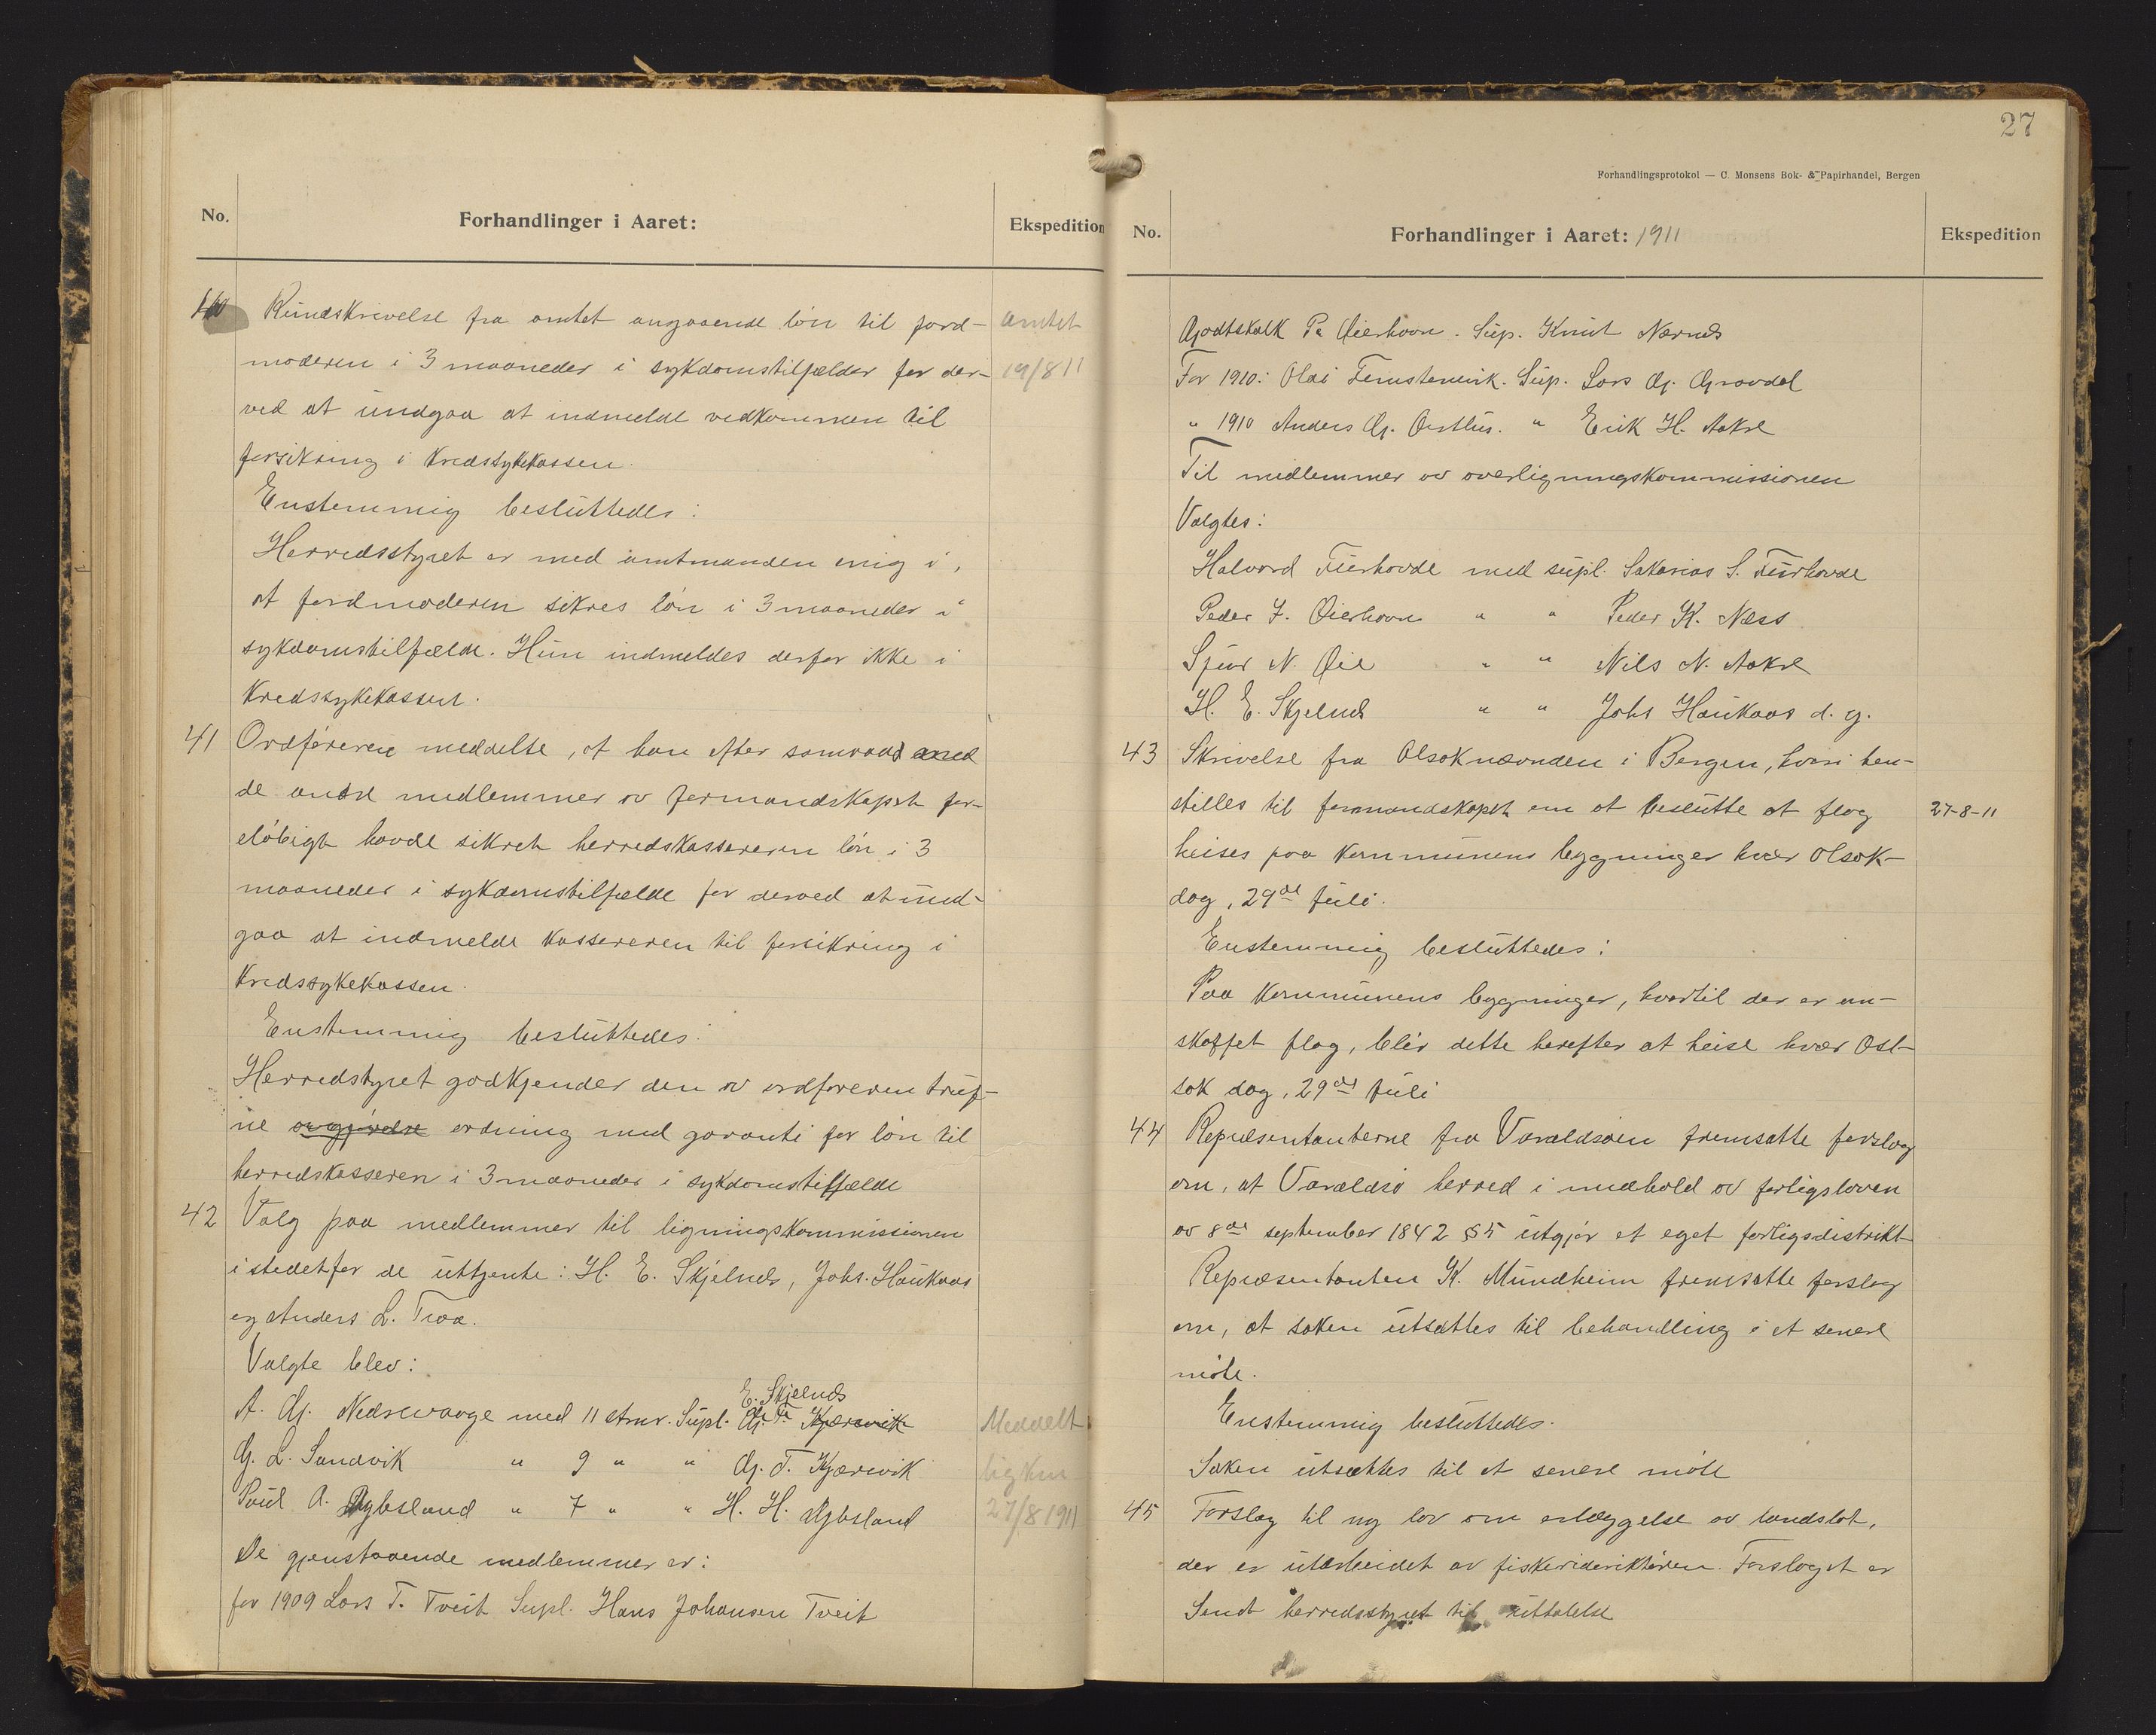 No.
Forhandlinger i Aaret:
Ekspedition
40 Rundskrivelse fra amtet angaaende løn til jord-
moderen i 3 maaneder i sykdomstilfælder for der-
ved at undgaa at indmelde vedkommen til
forsikring i Kredssykekassen.
Amtet
19/8 11
Enstemmig besluttedes:
Herredsstyret er med amtmanden enig i,
at jordmoderen sikres løn i 3 maaneder i
sykdomstilfælde. Hun indmeldes derfor ikke i
Kredssykekassen.
41 Ordføreren meddelte, at han efter samraad med
de andre medlemmer av formandskapet for-
eløbigt havde sikret herredskassereren løn i 3
maaneder i sykdomstilfælde for derved at und-
gaa at indmelde kassereren til forsikring i
Kredssykekassen.
Enstemmig besluttedes:
Herredstyret godkjender den av ordføreren truf-
ne avgjørelse ordning med garanti for løn til
herredskasseren i 3 maaneder i sykdomstilfælde
42 Valg paa medlemmer til ligningskommissionen
istedetfor de uttjente: H. E. Skjelnes, Johs. Haukaas
og Anders L. Tvoa.
Valgte blev:
E. Skjelnes
A. G. Nedrevaage med 11 stmr. Supl. G. T. Kjærevik
G. L. Sandvik " 9 " " G. T. Kjærevik
Poul A. Dybsland " 7 " " H. H. Dybsland
Meddelt
ligkm
27/8 1911
De gjenstaaende medlemmer er:
for 1909 Lars T. Tveit Supl. Hans Johansen Tveit
27
Forhandlingsprotokol — C. Monsens Bok- & Papirhandel, Bergen
No.
Forhandlinger i Aaret: 1911
Ekspedition
Godtskalk P. Øierhavn. Sup. Knut Nernes
For 1910: Olai Femstenevik. Sup. Lars G. Gravdal
" 1910 Anders G. Østhus. " Erik H. Aakre
Til medlemmer av overligningskommissionen
Valgtes:
Halvard Tuerhovde med supl. Sakarias S. Tuerhovde
Peder J. Øierhavn " " Peder K. Næss
Sjur N. Øie " " Nils N. Aakre
H. E. Skjelnes " " Johs Haukaas d. y.
43 Skrivelse fra Olsoknævnden i Bergen, hvori hen-
stilles til formandskapet om at beslutte at flag
27-8-11
heises paa kommunens bygninger hver Olsok-
dag, 29de juli.
Enstemmig besluttedes:
Paa kommunens bygninger, hvortil der er an-
skaffet flag, blir dette herefter at heise hver Ol-
sok dag, 29de juli
44 Repræsentanterne fra Varaldsøen fremsatte forslag
om, at Varaldsø herred i medhold av forligsloven
av 8de september 1842 §5 utgjør et eget forligsdistrikt
Repræsentanten K. Mundheim fremsatte forslag
om, at saken utsættes til behandling i et senere
møte.
Enstemmig besluttedes.
Saken utsættes til et senere møte
45 Forslag til ny lov om erlæggelse av landslot,
der er utarbeidet av fiskeridirektøren. Forslaget er
Sendt herredsstyret til uttalelse